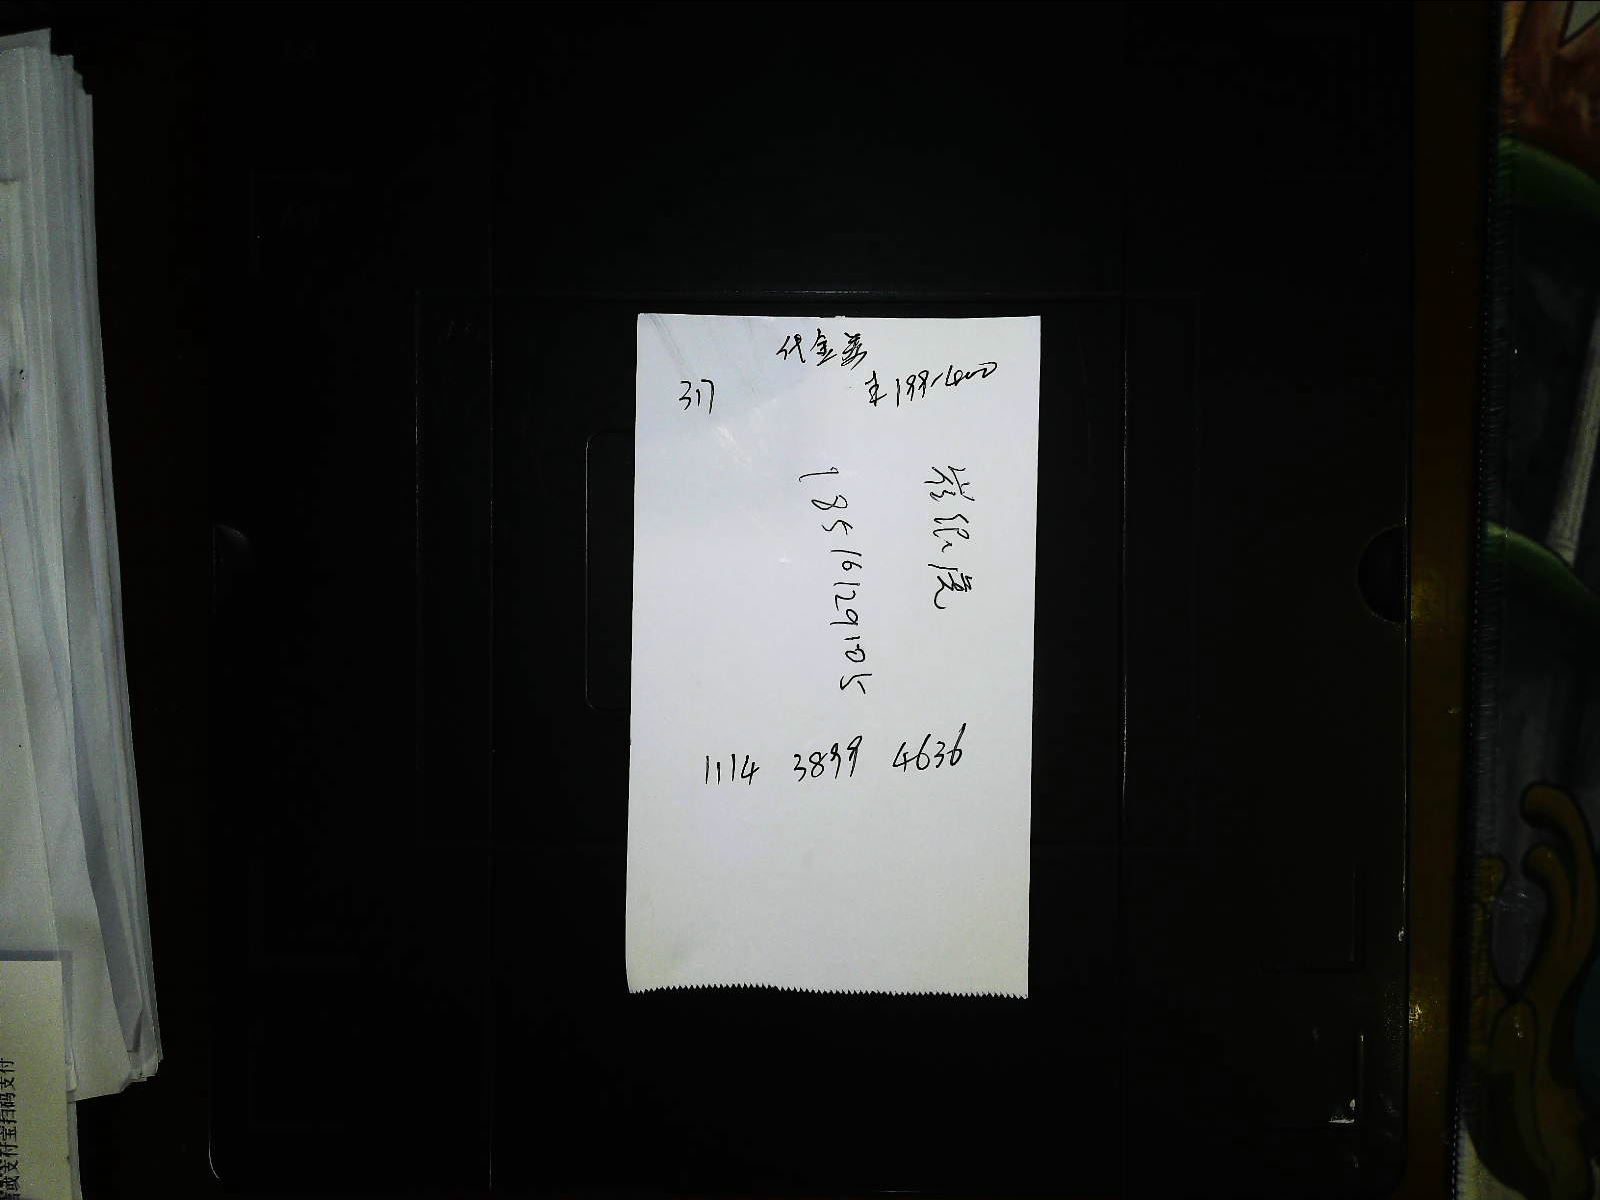 代金券
317
¥199-1000
崔银虎
18516129105
1114 3899 4636
信或支付宝扫码支付